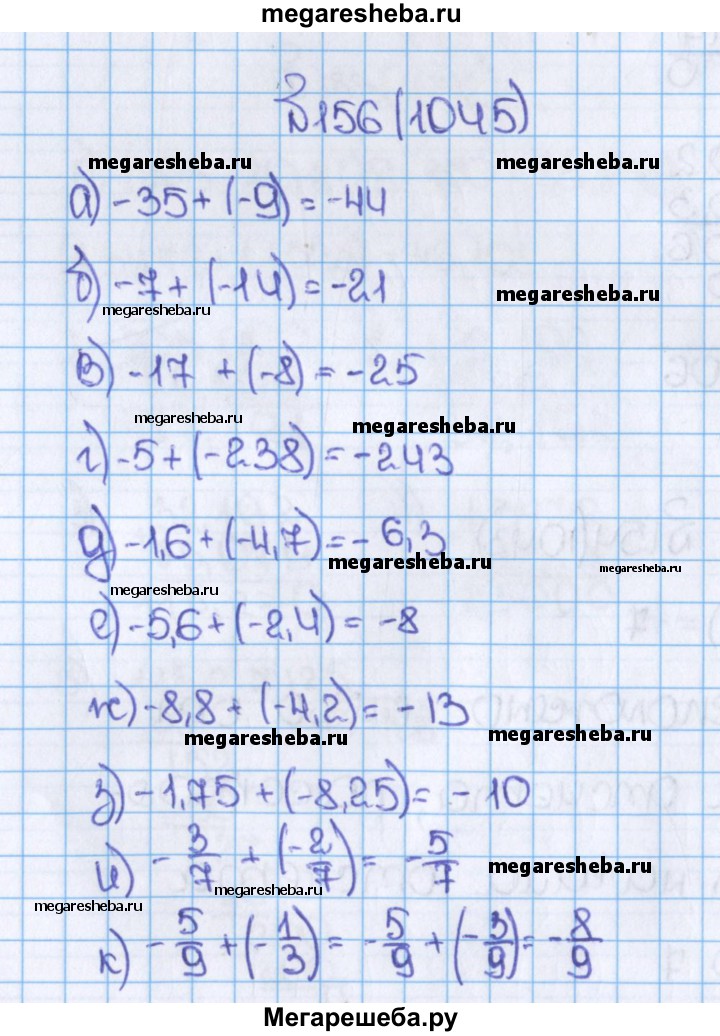 megaresheba.ru
№156(1045)
megaresheba.ru megaresheba.ru
а) -35+(-9)=-44
б) -7+(-14)=-21 megaresheba.ru
megaresheba.ru
в) -17 +(-8)=-25
megaresheba.ru megaresheba.ru
г) -5+(-238)=-243
д) -1,6+(-4,7)=-6,3
megaresheba.ru megaresheba.ru megaresheba.ru
е) -5,6+(-2,4)= -8
ж) -8,8+(-4,2)= -13
megaresheba.ru megaresheba.ru
з) -1,75+(-8,25)= -10
и) -3/7 + (-2/7)= -5/7 megaresheba.ru
megaresheba.ru megaresheba.ru
к) -5/9+(-1/3)= -5/9+(-3/9)= -8/9
Мегарешеба.ру